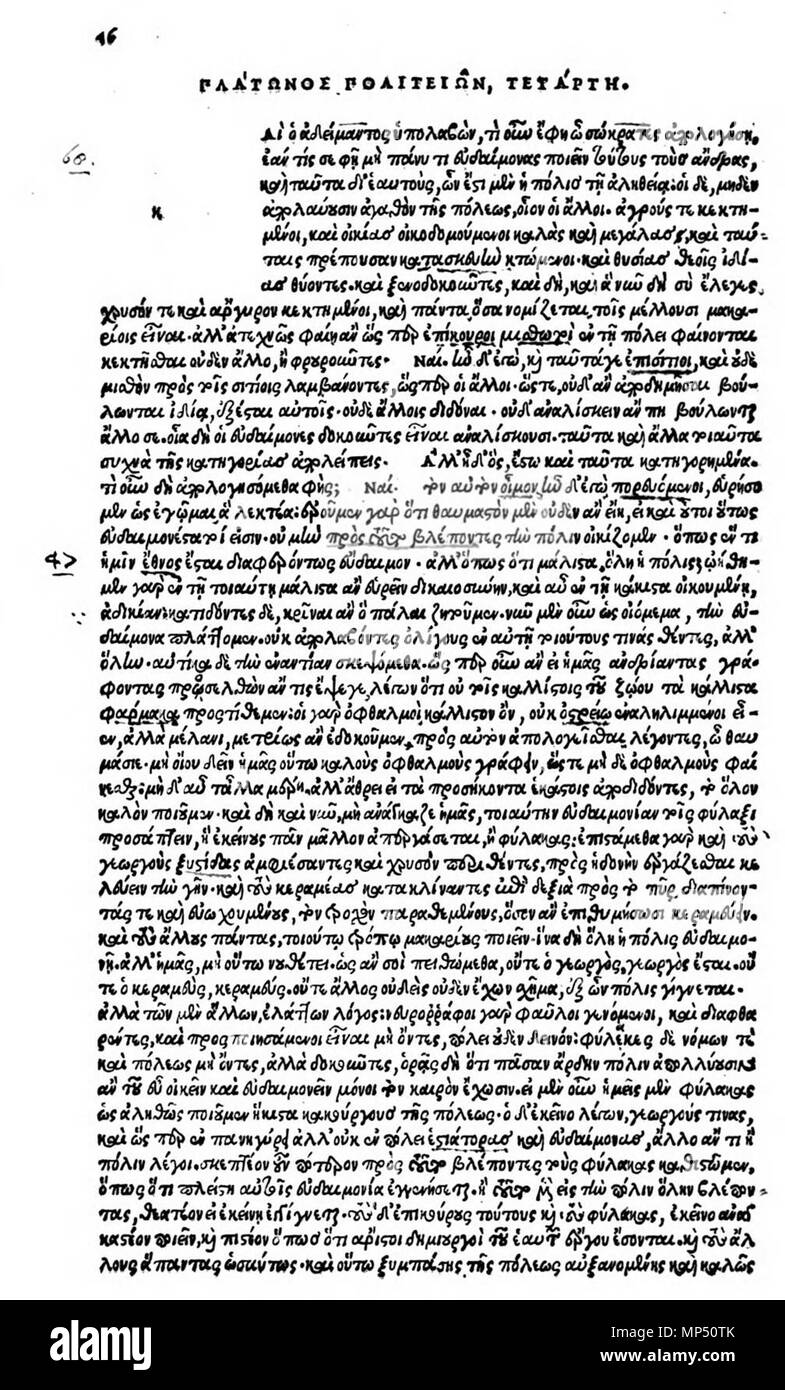 46
ΠΛΑ´ΤΩΝΟΣ ΠΟΛΙΤΕΙΩ͂Ν, ΤΕΤΑ´ΡΤΗ.
ΑΙ ὁ ἀδείμαντος ὑπολαβὼν, τί οὖν ἔφη ὦ σώκρατες ἀπολογήσῃ,
68.
ἐάν τίς σε φῇ μὴ πάνυ τι εὐδαίμονας ποιεῖν τούτους τοὺς ἄνδρας,
καὶ ταῦτα δι' ἑαυτοὺς, ὧν ἔστι μὲν ἡ πόλις τῇ ἀληθείᾳ· οἱ δὲ, μηδὲν
κ
ἀπολαύουσιν ἀγαθὸν τῆς πόλεως, οἷον οἱ ἄλλοι. ἀγρούς τε κεκτη-
μένοι, καὶ οἰκίας οἰκοδομούμενοι καλὰς καὶ μεγάλας, καὶ ταύ-
ταις πρέπουσαν κατασκευὴν κτώμενοι· καὶ θυσίας θεοῖς ἰδί-
ας θύοντες. καὶ ξενοδοκοῦντες, καὶ δὴ, καὶ ἃ νῦν δὴ σὺ ἔλεγες,
χρυσόν τε καὶ ἄργυρον κεκτημένοι, καὶ πάντα ὅσα νομίζεται τοῖς μέλλουσι μακα-
ρίοις εἶναι. ἀλλ' ἀτεχνῶς φαίη ἂν ὥς περ ἐπίκουροι μισθωτοὶ ἐν τῇ πόλει φαίνονται
κεκτῆσθαι οὐδὲν ἄλλο, ἢ φρουροῦντες. Ναί. ἦν δ' ἐγὼ, κỳ ταῦτά γε ἐπισίτιοι, καὶ οὐδὲ
μισθὸν πρὸς τοῖς σιτίοις λαμβάνοντες, ὥς περ οἱ ἄλλοι. ὥστε, οὐδ' ἂν ἀποδημῆσαι βού-
λωνται ἰδίᾳ, ἐξέσται αὐτοῖς. οὐδὲ ἄλλοις διδόναι. οὐδ' ἀναλίσκειν ἄν πη βούλωνται
ἄλλο σε. οἷα δὴ οἱ εὐδαίμονες δοκοῦντες εἶναι ἀναλίσκουσι. ταῦτα καὶ ἄλλα τοιαῦτα
συχνὰ τῆς κατηγορίας ἀπολείπεις. Ἀλλ' ἦ δ' ὃς, ἔστω καὶ ταῦτα κατηγορημένα.
τί οὖν δὴ ἀπολογησόμεθα φῄς; Ναί. τὸν αὐτὸν οἶμον, ἦν δ' ἐγὼ πορευόμενοι, εὑρήσο
μεν ὡς ἐγᾦμαι ἃ λεκτέα· ἐροῦμεν γὰρ ὅτι θαυμαστὸν μὲν οὐδὲν ἂν εἴη, εἰ καὶ οὗτοι οὕτως
εὐδαιμονέστατοί εἰσιν. οὐ μὴν πρὸς τοῦτο βλέποντες τὴν πόλιν οἰκίζομεν. ὅπως ἕν τι
47
ἡμῖν ἔθνος ἔσται διαφερόντως εὔδαιμον. ἀλλ' ὅπως ὅτι μάλιστα, ὅλη ἡ πόλις· ᾠήθη-
μεν γὰρ ἐν τῇ τοιαύτῃ μάλιστα ἂν εὑρεῖν δικαιοσύνην, καὶ αὖ ἐν τῇ κάκιστα οἰκουμένῃ,
ἀδικίαν. κατιδόντες δὲ, κρῖναι ἂν ὃ πάλαι ζητοῦμεν. νῦν μὲν οὖν ὡς οἰόμεθα, τὴν εὐ-
δαίμονα πλάττομεν. οὐκ ἀπολαβόντες ὀλίγους ἐν αὐτῇ τοιούτους τινὰς θέντες, ἀλλ'
ὅλην. αὐτίκα δὲ τὴν ἐναντίαν σκεψόμεθα. ὥς περ οὖν ἂν εἰ ἡμᾶς ἀνδριάντας γρά-
φοντας προσελθὼν ἄν τις ἔψεγε λέγων ὅτι οὐ τοῖς καλλίστοις τοῦ ζῴου τὰ κάλλιστα
φάρμακα προστίθεμεν· οἱ γὰρ ὀφθαλμοὶ κάλλιστον ὂν, οὐκ ὀστρείῳ ἐναληλιμμένοι εἶ-
εν, ἀλλὰ μέλανι, μετρίως ἂν ἐδοκοῦμεν, πρὸς αὐτὸν ἀπολογεῖσθαι λέγοντες, ὦ θαυ
μάσιε· μὴ οἴου δεῖν ἡμᾶς οὕτω καλοὺς ὀφθαλμοὺς γράφειν, ὥστε μὴ δὲ ὀφθαλμοὺς φαί
νεσθαι· μὴ δ' αὖ τἄλλα μέρη. ἀλλ' ἄθρει εἰ τὰ προσήκοντα ἑκάστοις ἀποδιδόντες, τὸ ὅλον
καλὸν ποιοῦμεν. καὶ δὴ καὶ νῦν, μὴ ἀνάγκαζε ἡμᾶς, τοιαύτην εὐδαιμονίαν τοῖς φύλαξι
προσάπτειν, ἣ ἐκείνους πᾶν μᾶλλον ἀπεργάσεται, ἢ φύλακας· ἐπιστάμεθα γὰρ καὶ τοὺς
γεωργοὺς ξυστίδας ἀμφιέσαντες καὶ χρυσὸν περιθέντες, πρὸς ἡδονὴν ἐργάζεσθαι κε
λεύειν τὴν γῆν. καὶ τοὺς κεραμέας κατακλίναντες ἐπὶ δεξιὰ πρὸς τὸ πῦρ διαπίνον-
τάς τε καὶ εὐωχουμένους, τὸν τροχὸν παραθεμένους, ὅσον ἂν ἐπιθυμήσωσι κεραμεύειν.
καὶ τοὺς ἄλλους πάντας, τοιούτῳ τρόπῳ μακαρίους ποιεῖν. ἵνα δὴ ὅλη ἡ πόλις εὐδαιμο-
νῇ. ἀλλ' ἡμᾶς, μὴ οὕτω νουθέτει. ὡς ἄν σοι πειθώμεθα, οὔτε ὁ γεωργὸς, γεωργὸς ἔσται. οὔ
τε ὁ κεραμεὺς, κεραμεύς. οὔτε ἄλλος οὐδεὶς οὐδὲν ἔχων σχῆμα, ἐξ ὧν πόλις γίγνεται.
ἀλλὰ τῶν μὲν ἄλλων, ἐλάττων λόγος· νευρορράφοι γὰρ φαῦλοι γενόμενοι, καὶ διαφθα
ρέντες, καὶ προσποιησάμενοι εἶναι μὴ ὄντες, πόλει οὐδὲν δεινόν· φύλακες δὲ νόμων τὲ
καὶ πόλεως μὴ ὄντες, ἀλλὰ δοκοῦντες, ὁρᾷς δὴ ὅτι πᾶσαν ἄρδην πόλιν ἀπολλύουσιν·
αὖ τοῦ εὖ οἰκεῖν καὶ εὐδαιμονεῖν μόνοι τὸν καιρὸν ἔχουσιν. εἰ μὲν οὖν ἡμεῖς μὲν φύλακας
ὡς ἀληθῶς ποιοῦμεν ἥκιστα κακούργους τῆς πόλεως. ὁ δ' ἐκεῖνο λέγων, γεωργούς τινας,
καὶ ὥς περ ἐν πανηγύρει ἀλλ' οὐκ ἐν πόλει ἑστιάτορας καὶ εὐδαίμονας, ἄλλο ἄν τι ἢ
πόλιν λέγοι. σκεπτέον οὖν πότερον πρὸς τοῦτο βλέποντες τοὺς φύλακας καθιστῶμεν,
ὅπως ὅτι πλείστη αὐτοῖς εὐδαιμονία ἐγγενήσεται. ἢ τοῦτο μὲν εἰς τὴν πόλιν ὅλην βλέπον-
τας, θεατέον εἰ ἐκείνῃ ἐγγίγνεται. τοὺς δ' ἐπικούρους τούτους κỳ τοὺς φύλακας, ἐκεῖνο ἀναγ
καστέον ποιεῖν, κỳ πειστέον ὅπως ὅτι ἄριστοι δημιουργοὶ τοῦ ἑαυτῶν ἔργου ἔσονται. κỳ τοὺς ἄλ
λους ἅπαντας ὡσαύτως. καὶ οὕτω ξυμπάσης τῆς πόλεως αὐξανομένης καὶ καλῶς
alamy
Image ID: MP50TK
www.alamy.com